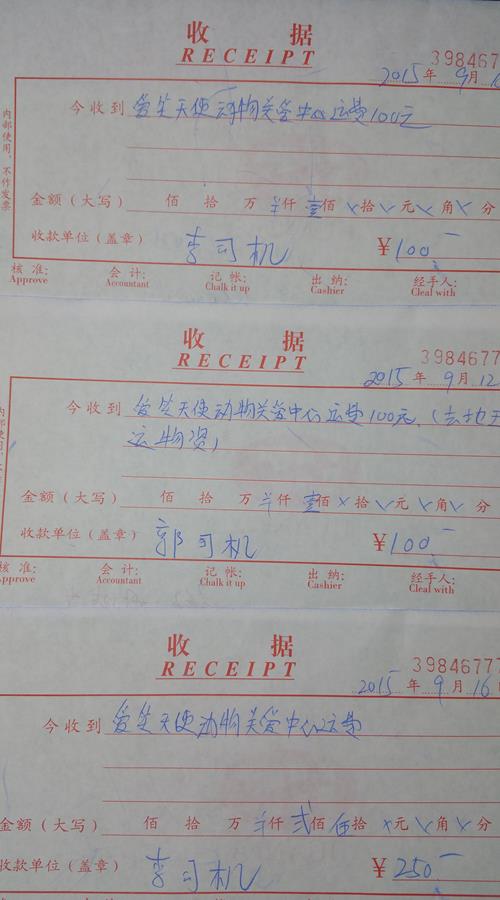 收 据
RECEIPT
398467
2015年 9月 1
今收到 爱笑天使动物关爱中心运费100元
金额（大写） 佰 拾 万 仟 壹佰 拾 元 角 分
收款单位（盖章） 李司机 ¥100.
核 准: 会 计: 记 帐: 出 纳: 经手人:
Approve Accountant Chalk it up Cashier Cleal with
内部使用，不作发票
收 据
RECEIPT
3984677
2015年 9月 12
今收到 爱笑天使动物关爱中心运费100元.（去地
运物资）
金额（大写） 佰 拾 万 仟 壹佰 拾 元 角 分
收款单位（盖章） 郭司机 ¥100.
核 准: 会 计: 记 帐: 出 纳: 经手人:
Approve Accountant Chalk it up Cashier Cleal with
收 据
RECEIPT
39846777
2015年 9月 16
今收到 爱笑天使动物关爱中心运费
金额（大写） 佰 拾 万 仟 贰佰 伍拾 元 角 分
收款单位（盖章） 李司机 ¥250.